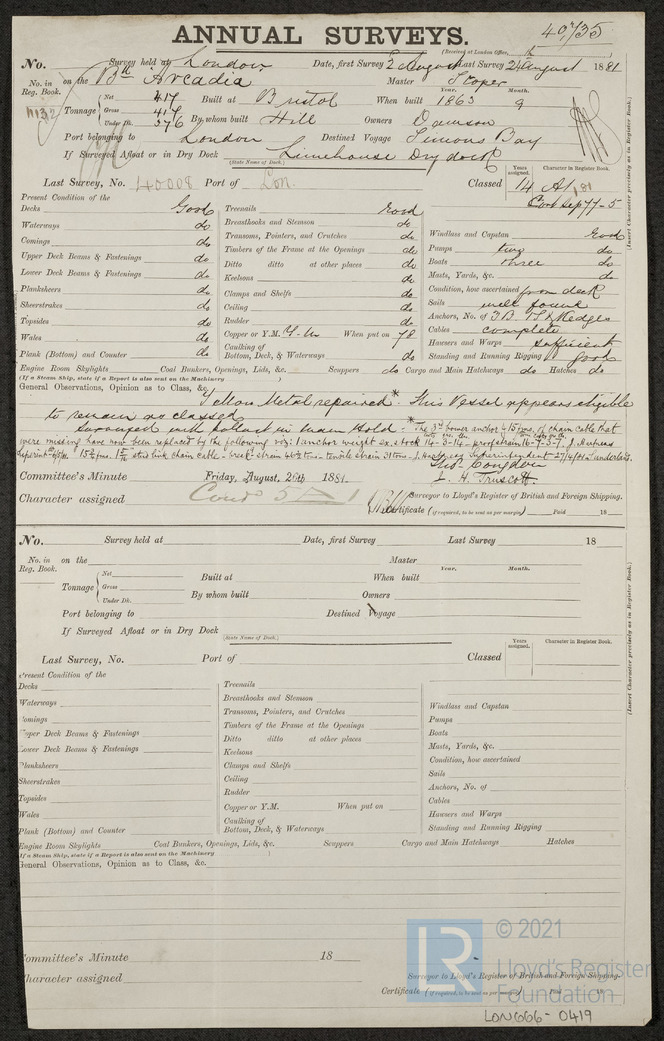 ANNUAL SURVEYS.
40,735
(Received at London Office,
No. Survey held at London Date, first Survey 2 August Last Survey 24 August 1881
No. in Reg. Book. on the Bk Arcadia Master
Tonnage Net 417 Built at Bristol When built Year. 1863 Month. 9
Gross 417 By whom built Hill Owners Dawson
Under Dk. 376
Port belonging to London Destined Voyage Simons Bay
If Surveyed Afloat or in Dry Dock Limehouse Dry dock
(State Name of Dock.)
Years assigned. Character in Register Book.
Last Survey, No. 40008 Port of Lon. Classed 14 A1
Cont Sep 77-5
(Insert Character precisely as in Register Book.)
Present Condition of the
Decks Good
Waterways do
Comings do
Upper Deck Beams & Fastenings do
Lower Deck Beams & Fastenings do
Planksheers do
Sheerstrakes do
Topsides do
Wales do
Plank (Bottom) and Counter do
Treenails Good
Breasthooks and Stemson do
Transoms, Pointers, and Crutches do
Timbers of the Frame at the Openings do
Ditto ditto at other places do
Keelsons do
Clamps and Shelfs do
Ceiling do
Rudder do
Copper or Y.M. Y.M When put on 78
Caulking of Bottom, Deck, & Waterways do
Windlass and Capstan Good
Pumps two do
Boats three do
Masts, Yards, &c. do
Condition, how ascertained from deck
Sails well found
Anchors, No. of 3B. 1S. & Kedges
Cables complete
Hawsers and Warps sufficient
Standing and Running Rigging good
Engine Room Skylights Coal Bunkers, Openings, Lids, &c. Scuppers do Cargo and Main Hatchways do Hatches do
(If a Steam Ship, state if a Report is also sent on the Machinery )
General Observations, Opinion as to Class, &c.
Y. Mon Metal repaired * This Vessel appears eligible
to remain as classed
Surveyed with ballast in Main Hold. * The 3rd bower anchor & 15 fms. of chain cable that
were missing have now been replaced by the following viz: 1 anchor weight ex. stock 14-3-14
Thos. Congdon
J. H. Truscott
Committee's Minute Friday, August, 26th 1881.
Character assigned
Surveyor to Lloyd's Register of British and Foreign Shipping.
Certificate (if required, to be sent as per margin) Paid 18
No. Survey held at Date, first Survey Last Survey 18
No. in Reg. Book. on the Master
Tonnage Net Built at When built Year. Month.
Gross By whom built Owners
Under Dk.
Port belonging to Destined Voyage
If Surveyed Afloat or in Dry Dock
(State Name of Dock.)
Years assigned. Character in Register Book.
Last Survey, No. Port of Classed
(Insert Character precisely as in Register Book.)
Present Condition of the
Decks
Waterways
Comings
Upper Deck Beams & Fastenings
Lower Deck Beams & Fastenings
Planksheers
Sheerstrakes
Topsides
Wales
Plank (Bottom) and Counter
Treenails
Breasthooks and Stemson
Transoms, Pointers, and Crutches
Timbers of the Frame at the Openings
Ditto ditto at other places
Keelsons
Clamps and Shelfs
Ceiling
Rudder
Copper or Y.M. When put on
Caulking of Bottom, Deck, & Waterways
Windlass and Capstan
Pumps
Boats
Masts, Yards, &c.
Condition, how ascertained
Sails
Anchors, No. of
Cables
Hawsers and Warps
Standing and Running Rigging
Engine Room Skylights Coal Bunkers, Openings, Lids, &c. Scuppers Cargo and Main Hatchways Hatches
(If a Steam Ship, state if a Report is also sent on the Machinery )
General Observations, Opinion as to Class, &c.
Committee's Minute 18
Character assigned
Surveyor to Lloyd's Register of British and Foreign Shipping.
Certificate (if required, to be sent as per margin) Paid 18
LR
© 2021
Lloyd's Register
Foundation
LON666-0419